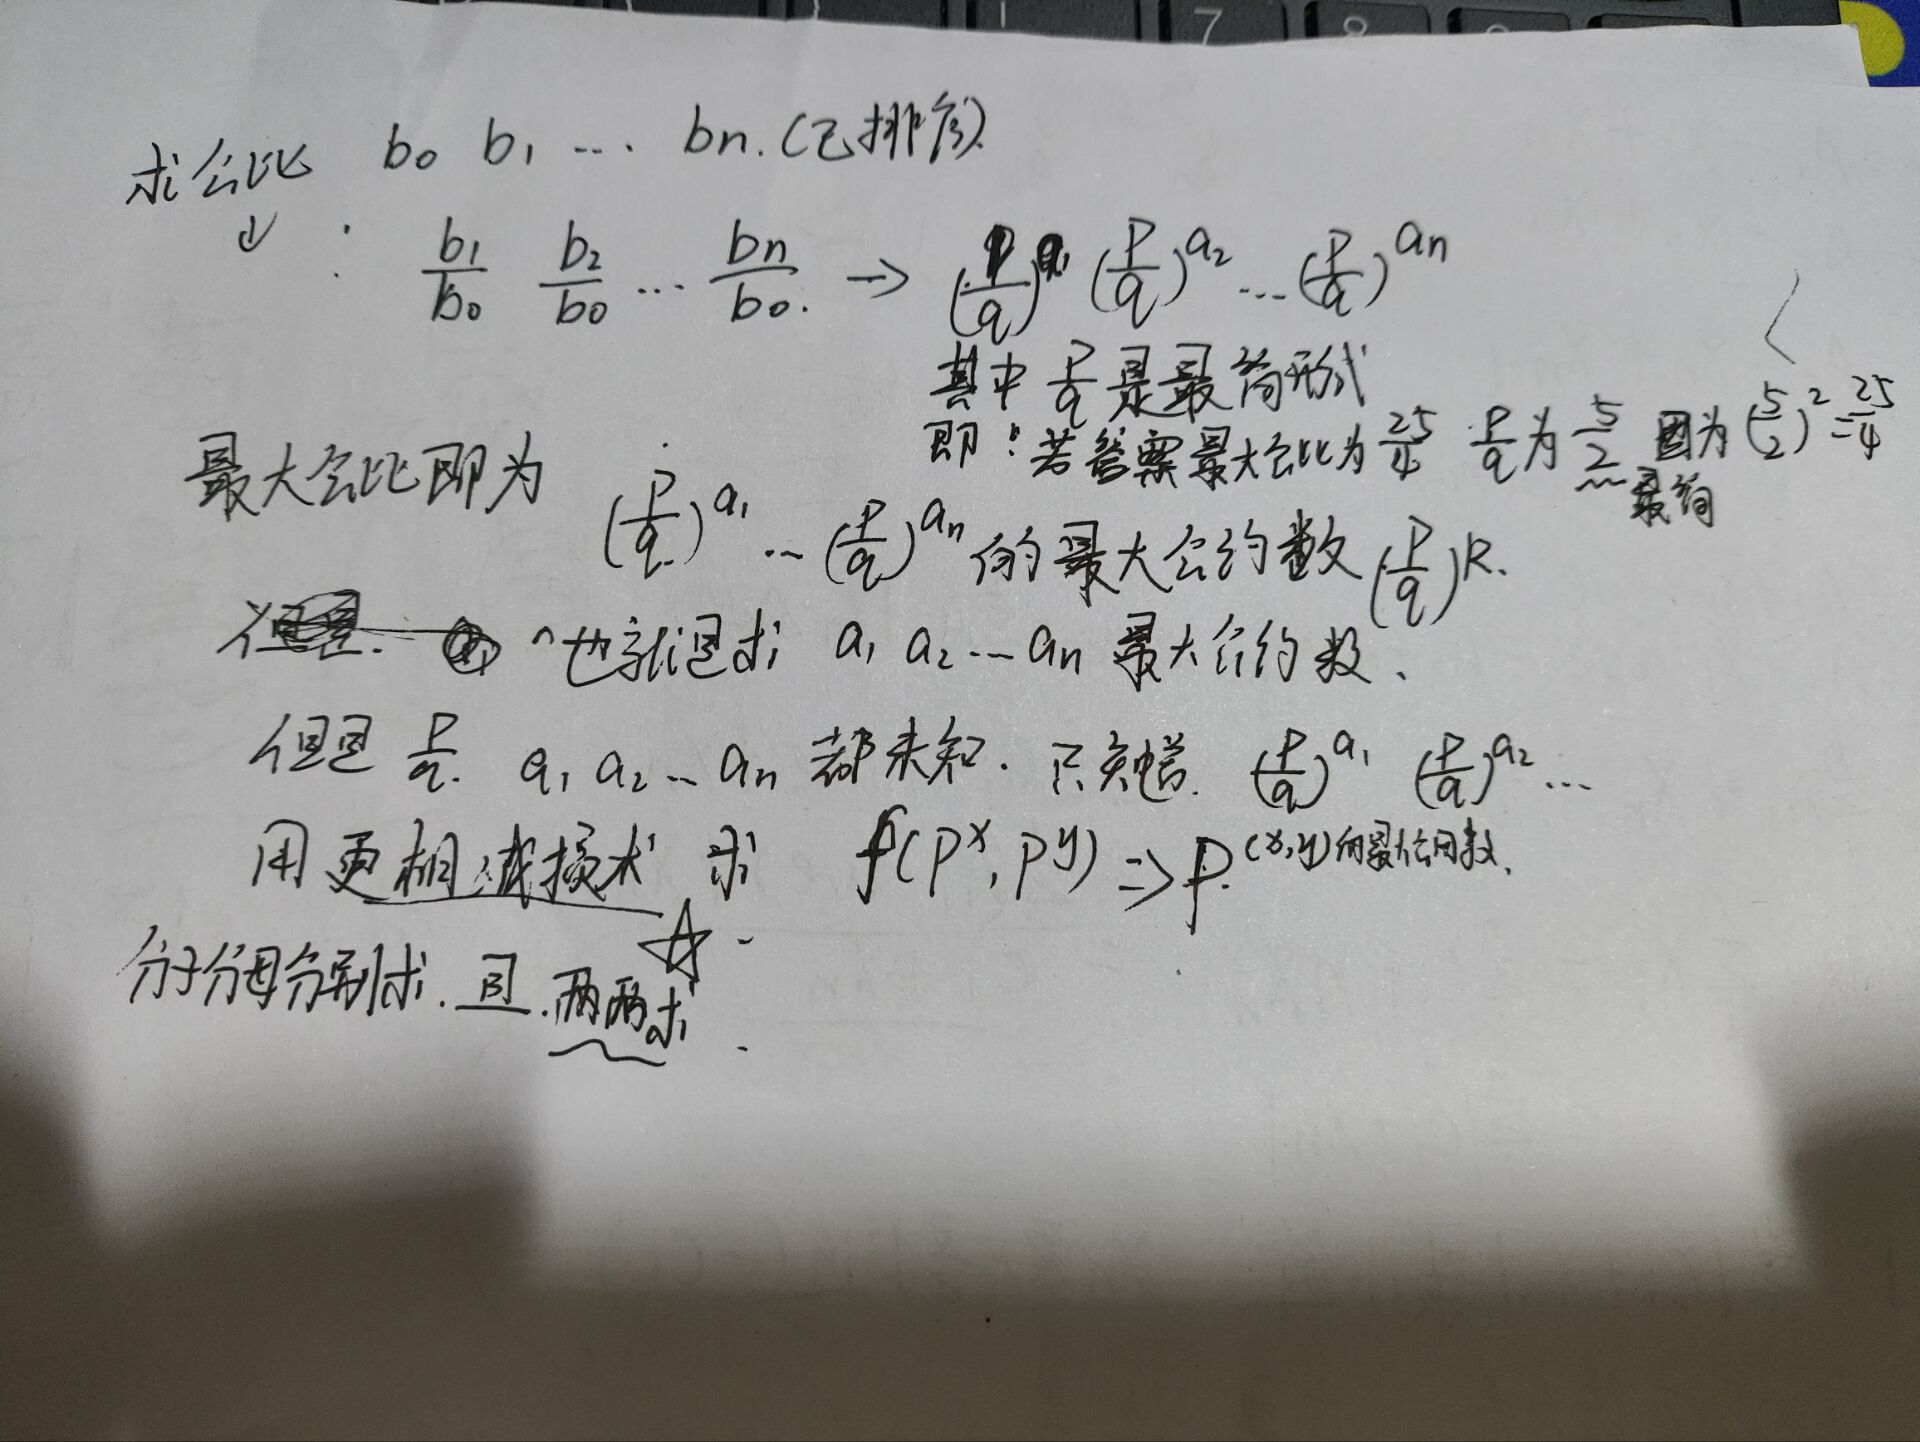 7 8 9
求公比 b₀ b₁ … bn.(已排序)
↓ : b₁/b₀ b₂/b₀ … bn/b₀. → (p/q)^a₁ (p/q)^a₂ … (p/q)^an
其中 p/q 是最简形式
即:若答案最大公比为 25/4 p/q 为 5/2 因为 (5/2)² = 25/4
最简
最大公比即为 (p/q)^a₁ … (p/q)^an 的最大公约数 (p/q)^k.
也就是求 a₁ a₂ … an 最大公约数、
但是 p/q. a₁ a₂ … an 都未知. 只知道. (p/q)^a₁ (p/q)^a₂ …
用更相减损术 求 f(p^x, p^y) ⇒ p^(x,y)的最大公因数.
☆
分子分母分别求. 且. 两两求.